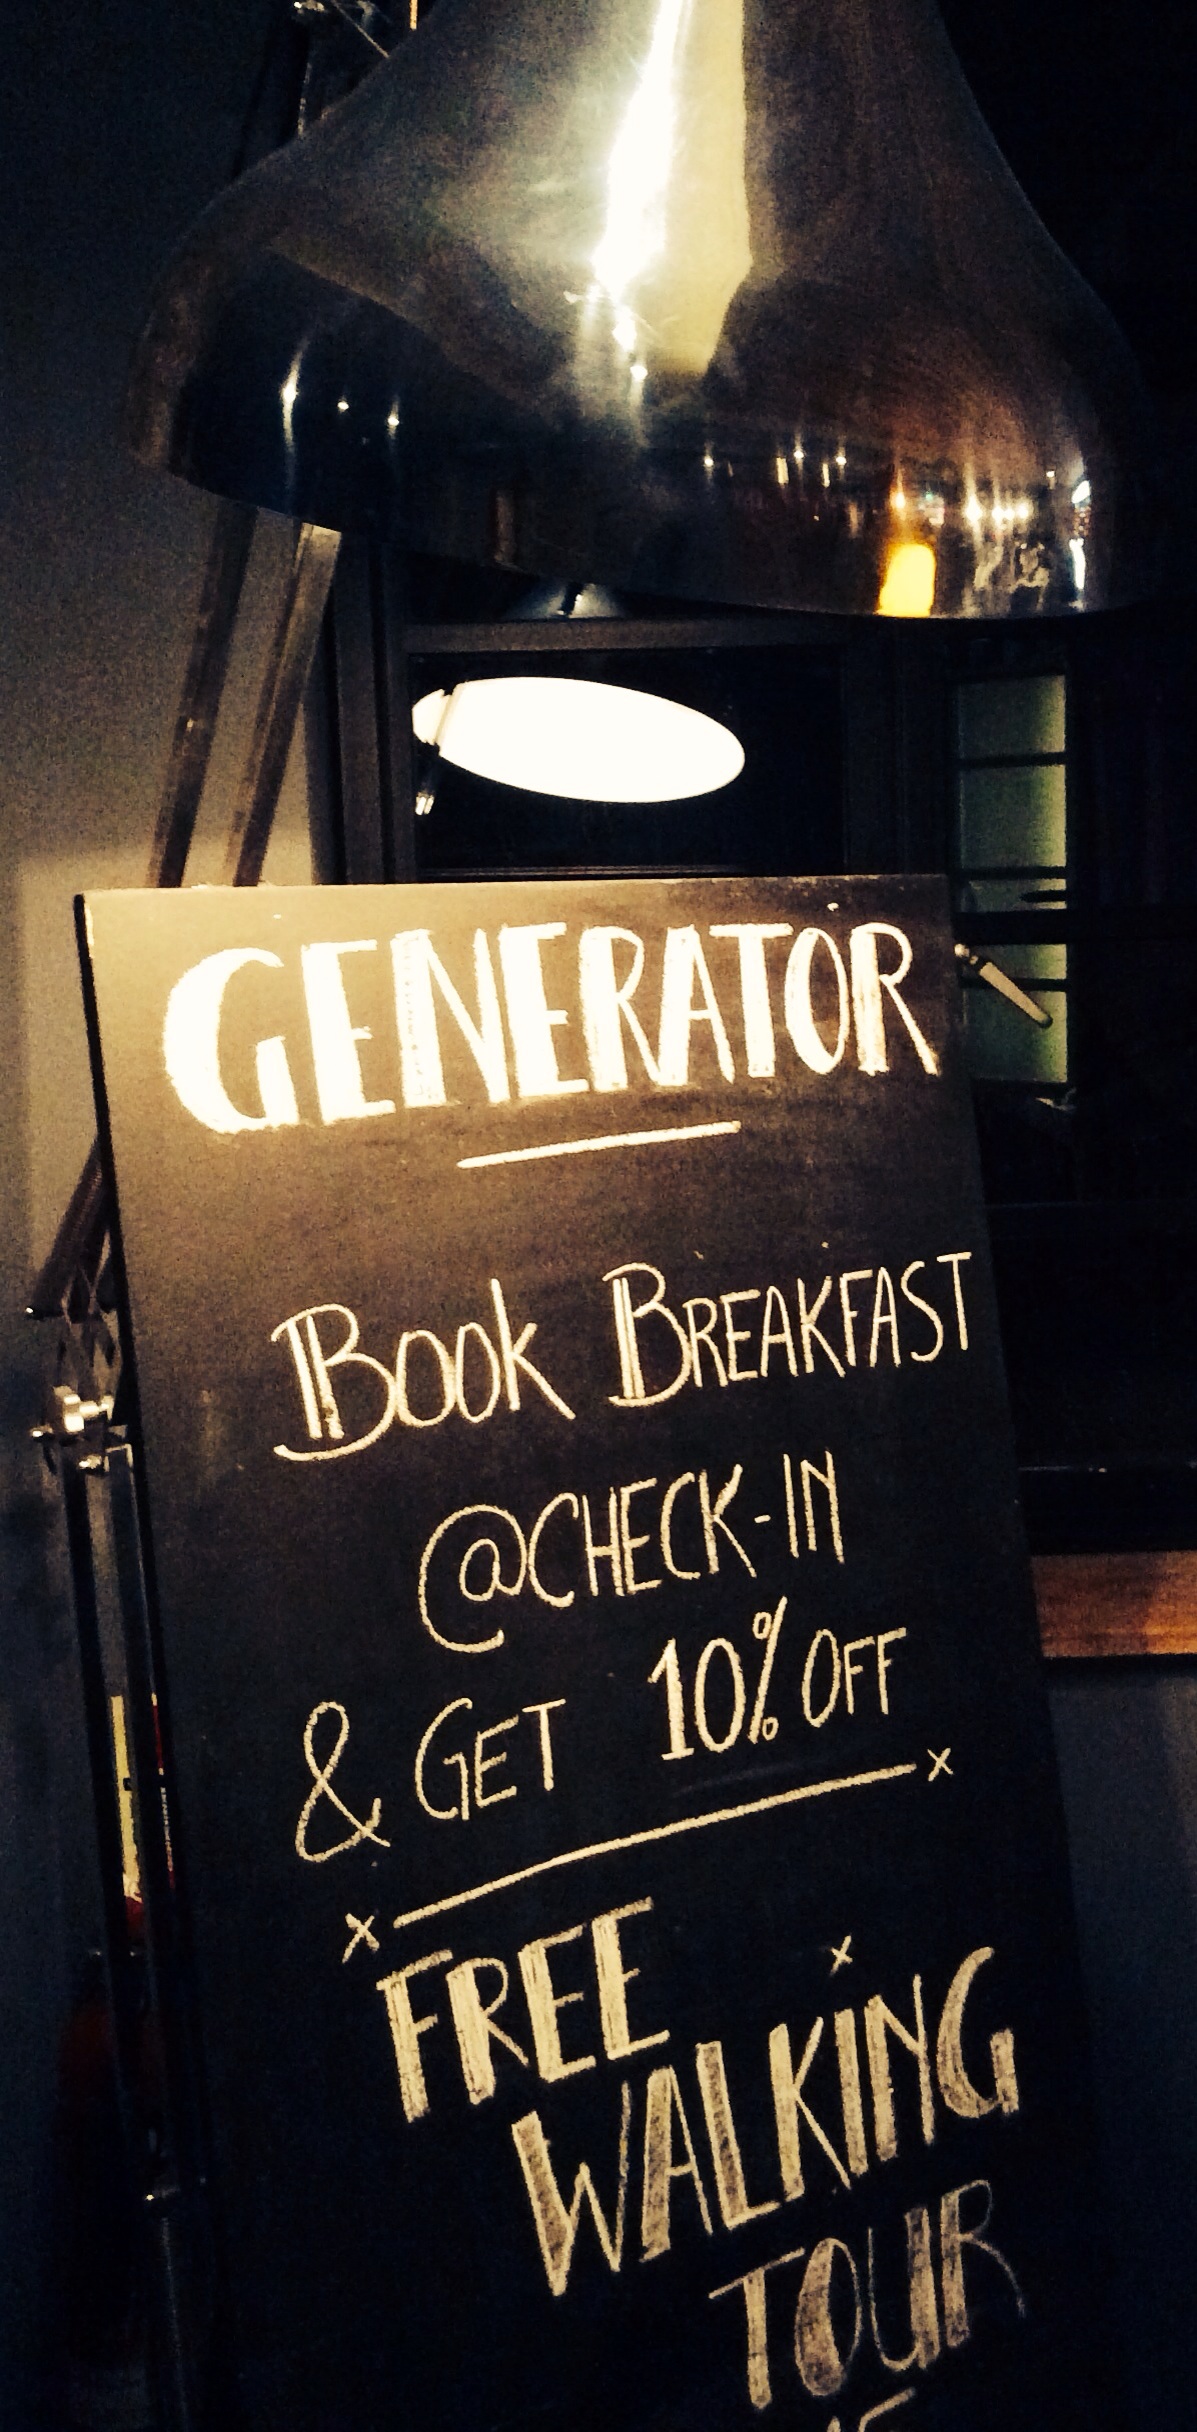 GENERATOR
BOOK BREAKFAST
@CHECK-IN
& GET 10% OFF
FREE
WALKING
TOUR